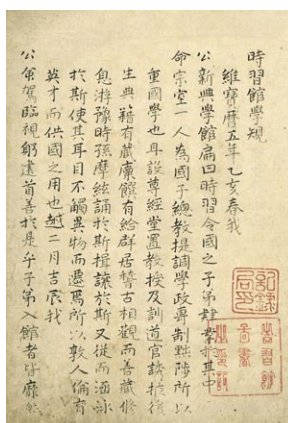 時習館學規
維寶曆五年乙亥春我
公新興學館扁曰時習令國之子弟肄業於其中
命宗室一人為國子總教提調學政再制黜陟所以
重國學也再設尊經堂置教授及訓道官談推後
生典籍有藏廩餼有給群居稽古相觀而善藏修
息游豫時孫摩絃誦於斯揖讓於斯又從而涵泳
於斯使其耳目不觸異物而遷焉所以敦人倫育
英才而供國之用也越二月吉辰我
公命駕臨視躬述首善於是乎子弟入館者皆靡然